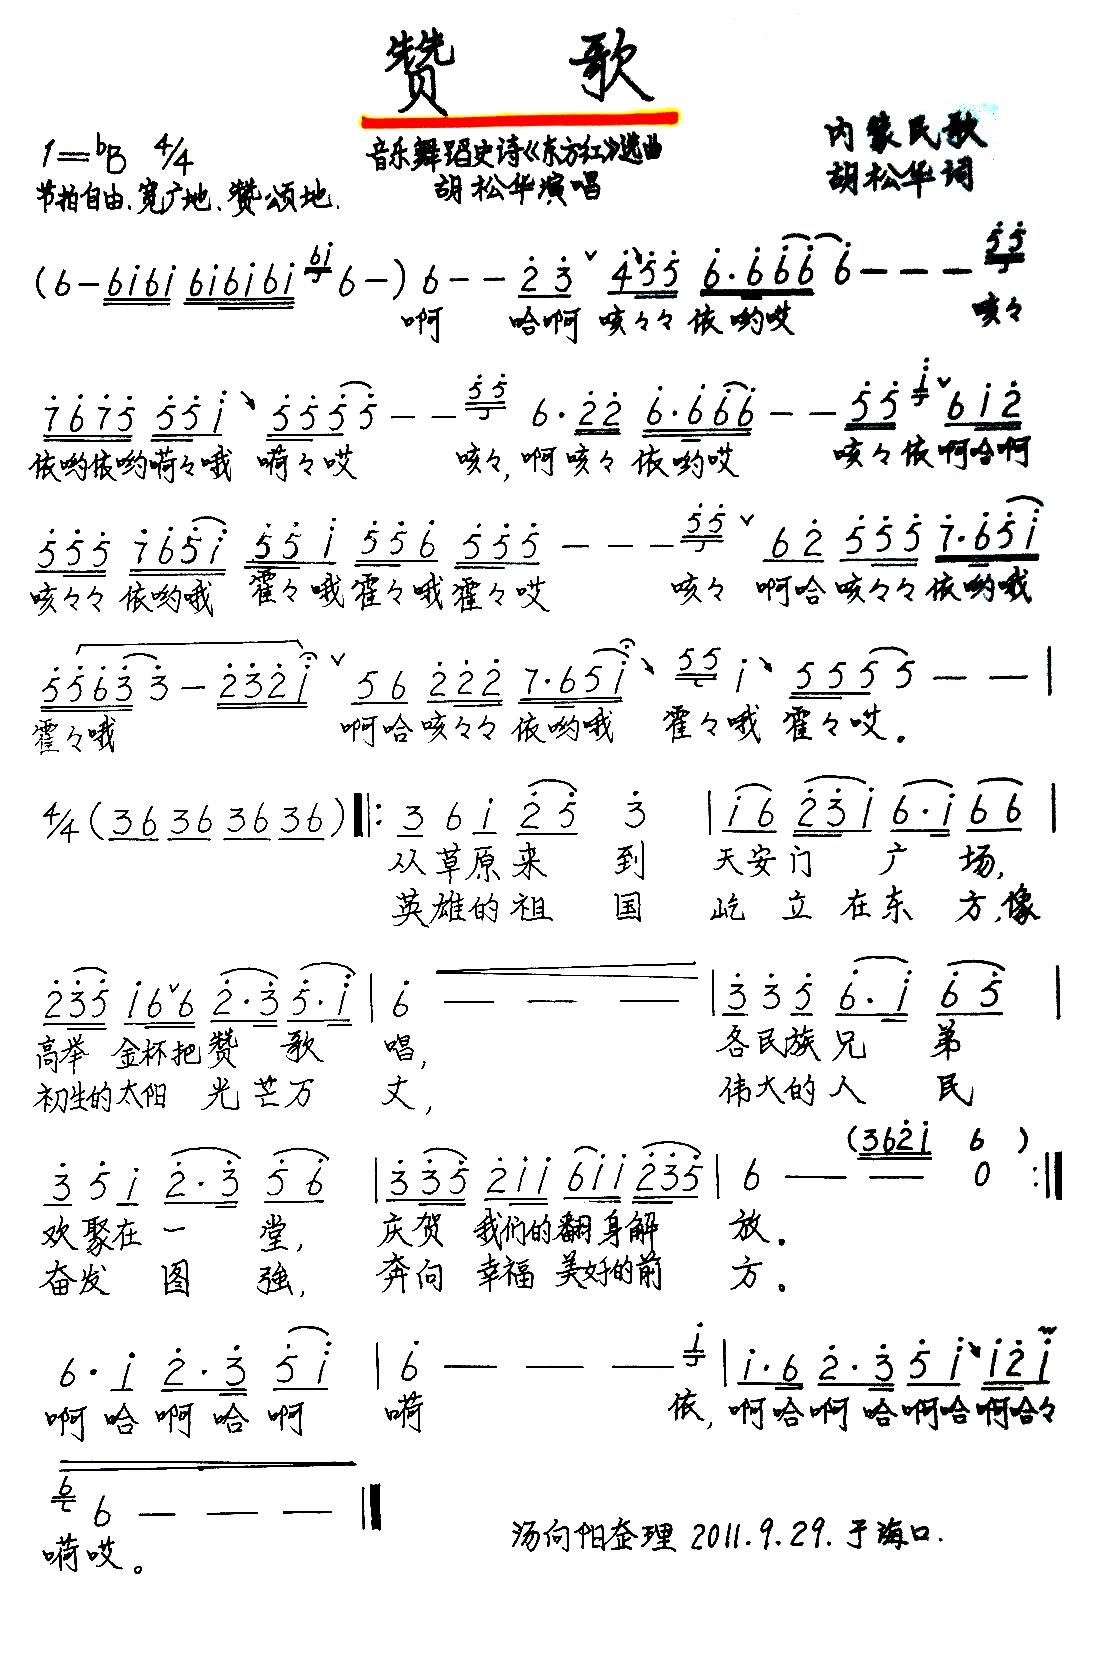 赞 歌
1=♭B 4/4
音乐舞蹈史诗《东方红》选曲
内蒙民歌
胡松华演唱
胡松华词
节拍自由、宽广地、赞颂地.
(6-6i6i 6i6i6i 6i 6-) 6-- 2 3 ˅ 4 5 5 6·6 6 6 6--- 5 5
啊 哈啊 咳々々 依哟哎 咳々
7 6 7 5 5 5 i 5 5 5 5 -- 5 5 6·2 2 6·6 6 6 -- 5 5 i ˅ 6 i 2
依哟依哟嗬々哦 嗬々哎 咳々,啊咳々 依哟哎 咳々依啊哈啊
5 5 5 7 6 5 i 5 5 i 5 5 6 5 5 5 --- 5 5 ˅ 6 2 5 5 5 7·6 5 i
咳々々 依哟哦 霍々哦霍々哦霍々哎 咳々 啊哈 咳々々依哟哦
5 5 6 3 3 - 2 3 2 i ˅ 5 6 2 2 2 7·6 5 i 5 5 i 5 5 5 5 -- |
霍々哦 啊哈咳々々 依哟哦 霍々哦 霍々哎。
4/4 (36 36 36 36) ‖: 3 6 i 2 5 3 | i 6 2 3 i 6·i 6 6 |
从草原来 到 天安门 广 场,
英雄的祖 国 屹 立 在东 方,像
2 3 5 i 6˅6 2·3 5·i | 6 - - - | 3 3 5 6·i 6 5 |
高举 金杯把赞 歌 唱, 各民族兄 弟
初生的太阳 光 芒万 丈, 伟大的人 民
(3 6 2 i 6 )
3 5 i 2·3 5 6 | 3 3 5 2 i i 6 i i 2 3 5 | 6 - - 0 :‖
欢聚在 一 堂, 庆贺 我们的翻身解 放。
奋发 图 强, 奔向 幸福 美好的前 方。
6·i 2·3 5 i | 6 - - - i | i·6 2·3 5 i i 2 i
啊 哈 啊 哈 啊 嗬 依, 啊哈啊 哈啊哈啊哈々
6 6 - - - ‖
嗬哎。
汤向阳整理 2011.9.29.于海口.